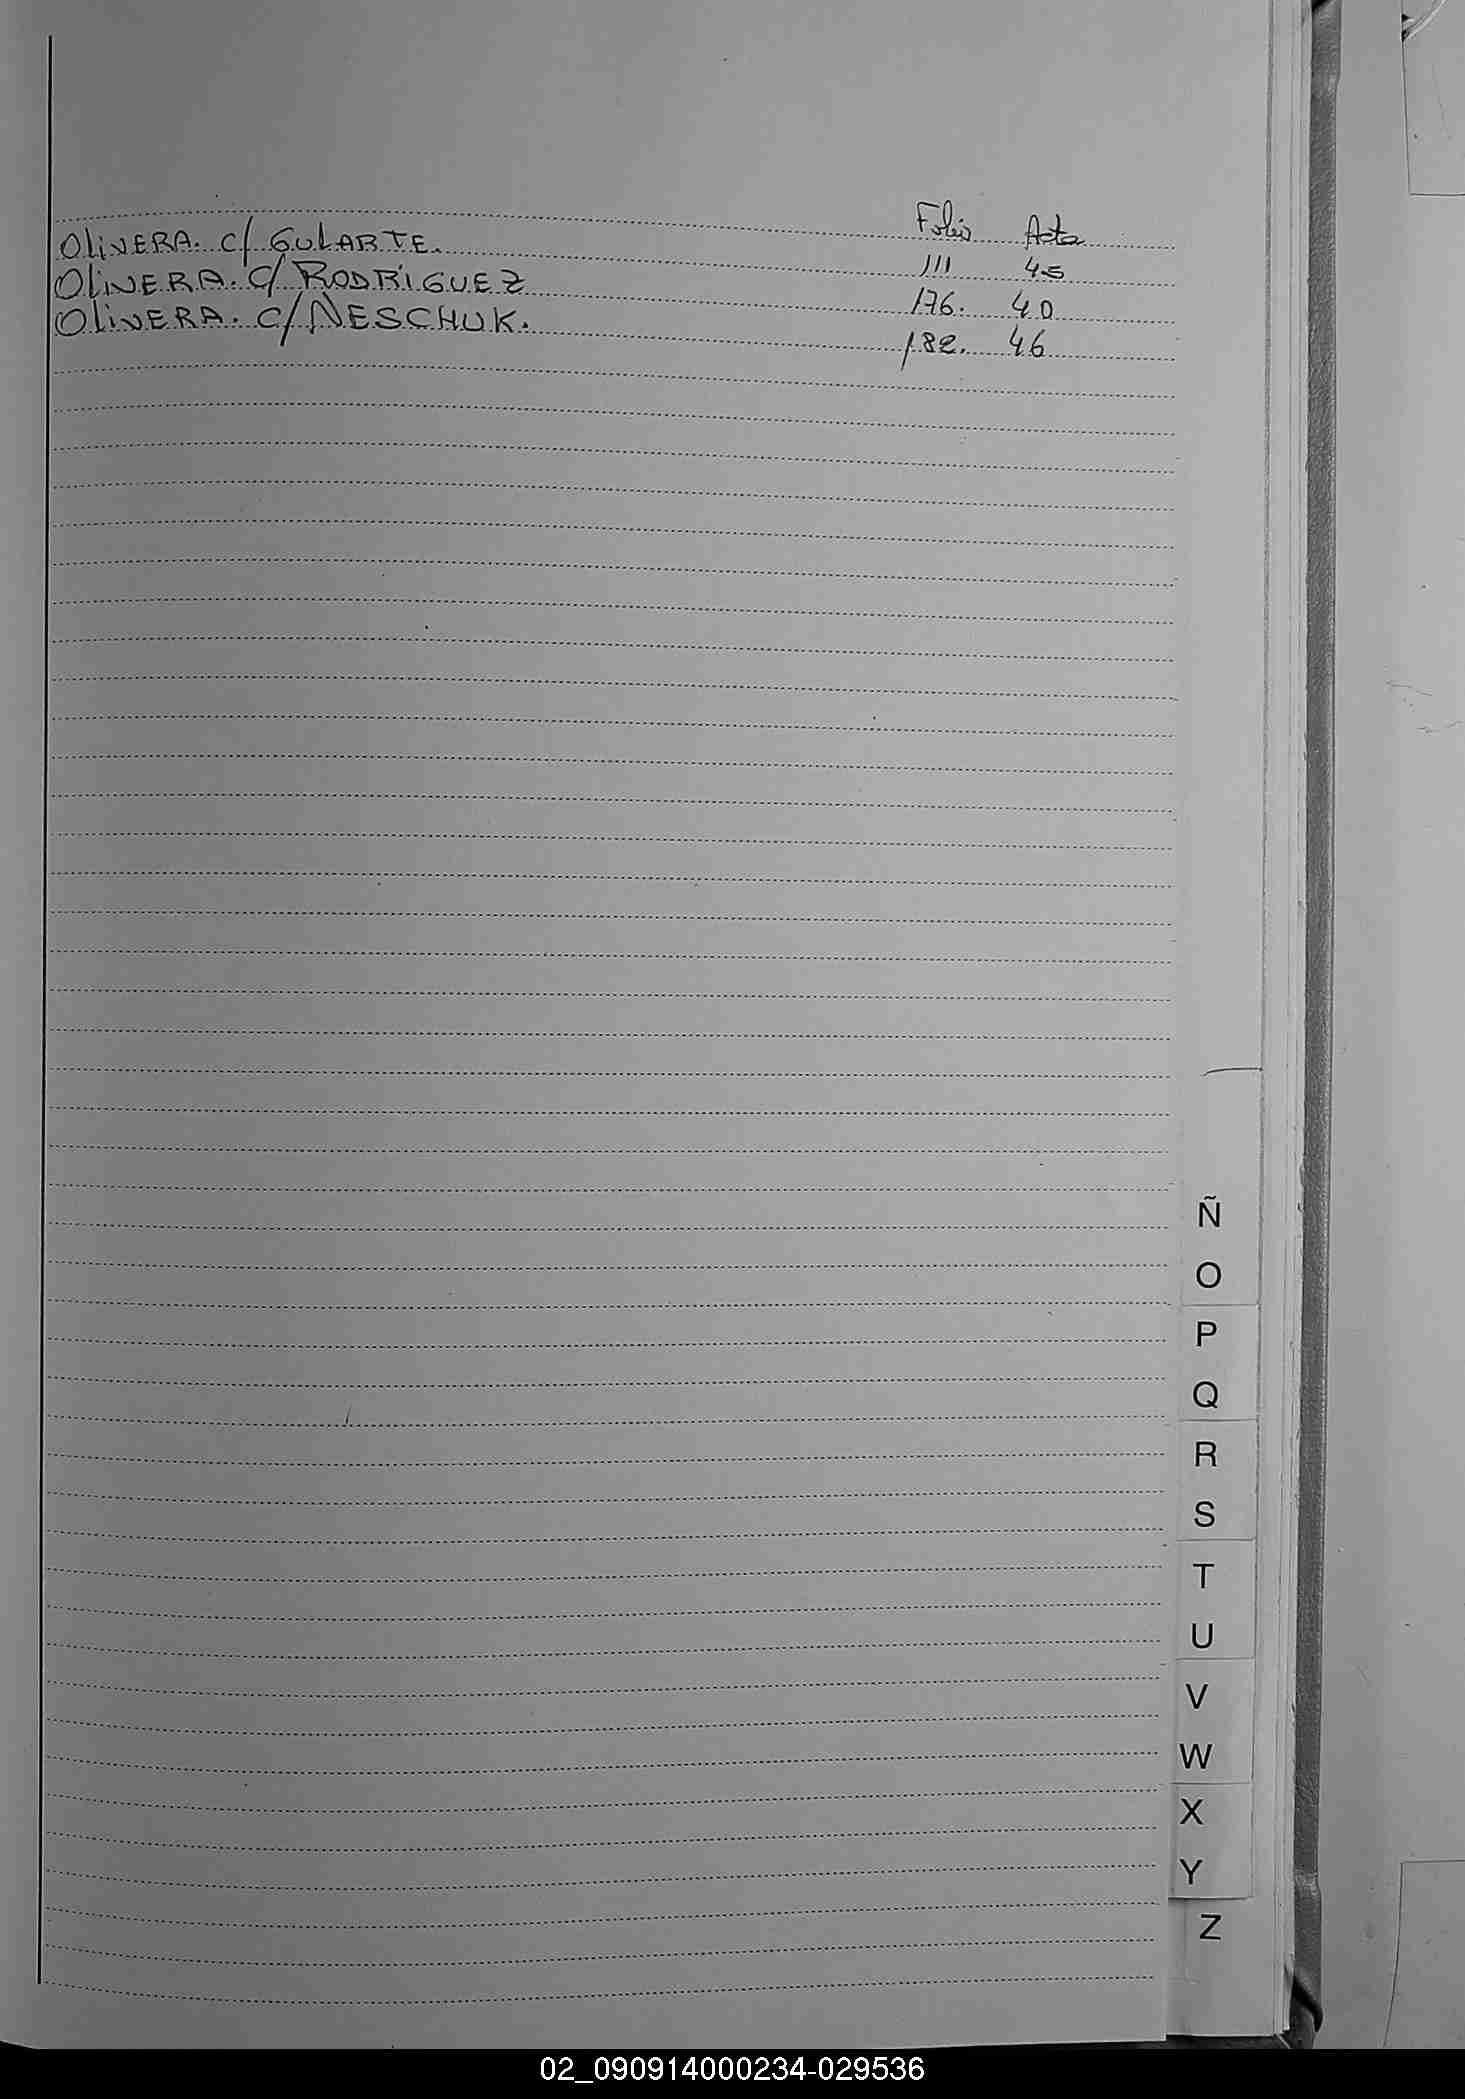 Folio Acta
OLIVERA. C/ GULARTE. 111 45
OLIVERA. C/ RODRIGUEZ 176. 40
OLIVERA. C/ NESCHUK. 182. 46
Ñ
O
P
Q
R
S
T
U
V
W
X
Y
Z
02_090914000234-029536